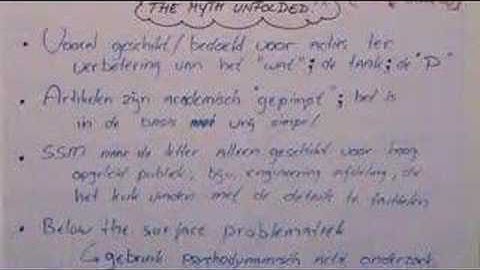 THE MYTH UNFOLDED
• Vooral geschikt / bedoeld voor acties ter
verbetering van het "wat"; de taak; de "P"
• Artikelen zijn academisch "gepimpt"; het is
in de basis vrij simpel
• SSM naar de letter alleen geschikt voor hoog
opgeleid publiek, bijv. engineering afdeling, die
het leuk vinden met de details te
• Below the surface problematiek
↳ gebruik psychodynamisch